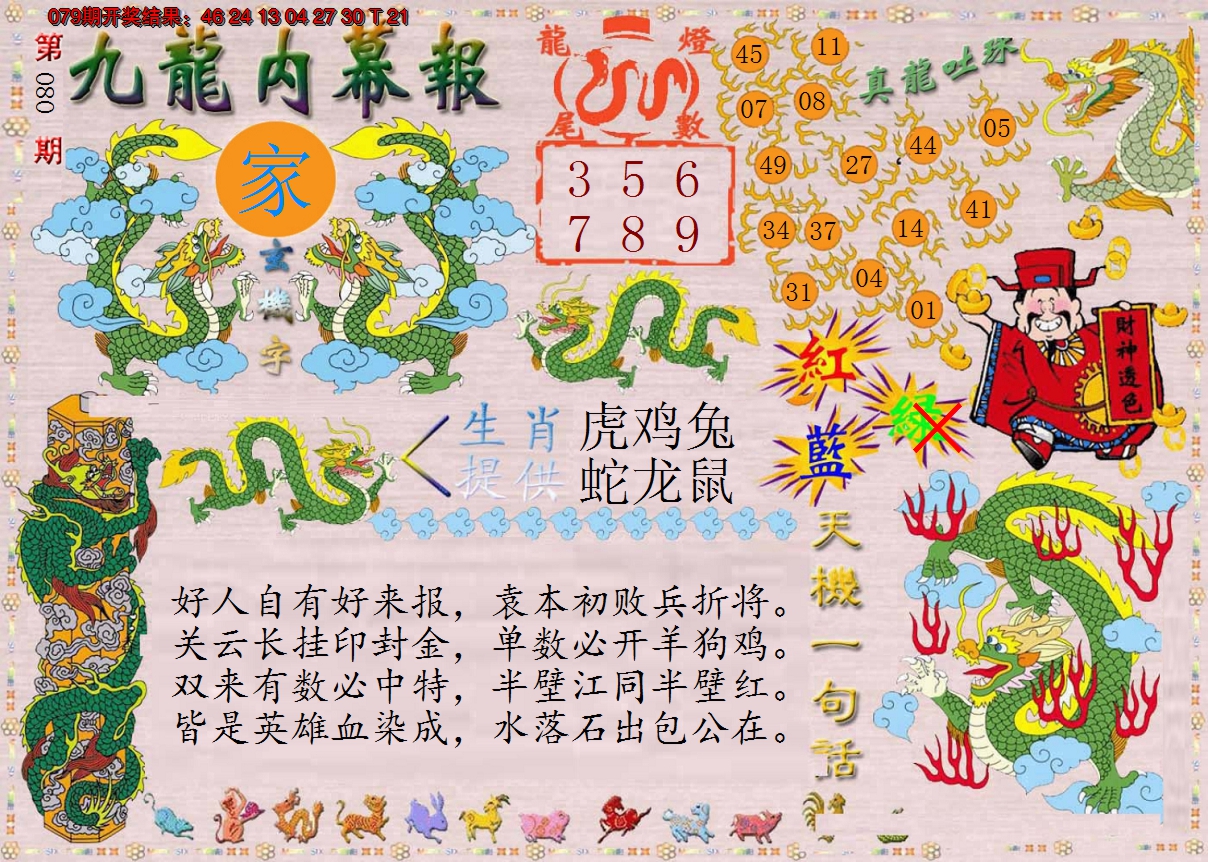 079期开奖结果：46 24 13 04 27 30 T 21
第080期
九龍内幕報
家
玄機字
龍燈
尾數
3 5 6
7 8 9
真龍吐珠
45 11
07 08
44 05
49 27
41
34 37 14
04
31 01
財神透色
紅
綠
藍
生肖 虎鸡兔
提供 蛇龙鼠
天機一句話
好人自有好来报，袁本初败兵折将。
关云长挂印封金，单数必开羊狗鸡。
双来有数必中特，半壁江同半壁红。
皆是英雄血染成，水落石出包公在。